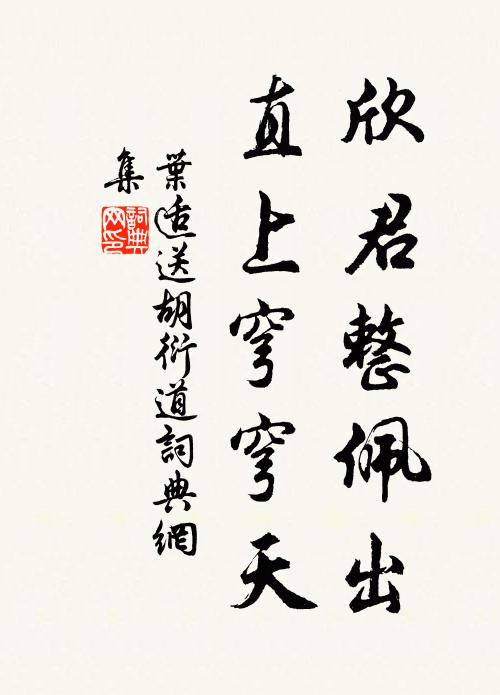 欣君整佩出
直上穹穹天
葉适送胡衍道詞典網
集
詞典
网印